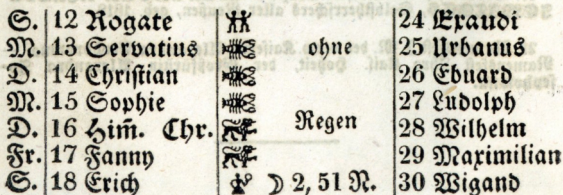 S. 12 Rogate 24 Exaudi
M. 13 Servatius ohne 25 Urbanus
D. 14 Christian 26 Eduard
M. 15 Sophie 27 Ludolph
D. 16 Him̄. Chr. Regen 28 Wilhelm
Fr. 17 Fanny 29 Maximilian
S. 18 Erich ☽ 2, 51 N. 30 Wigand